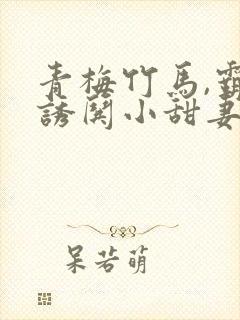 青梅竹马,霸
誘闋小甜妻
呆若萌